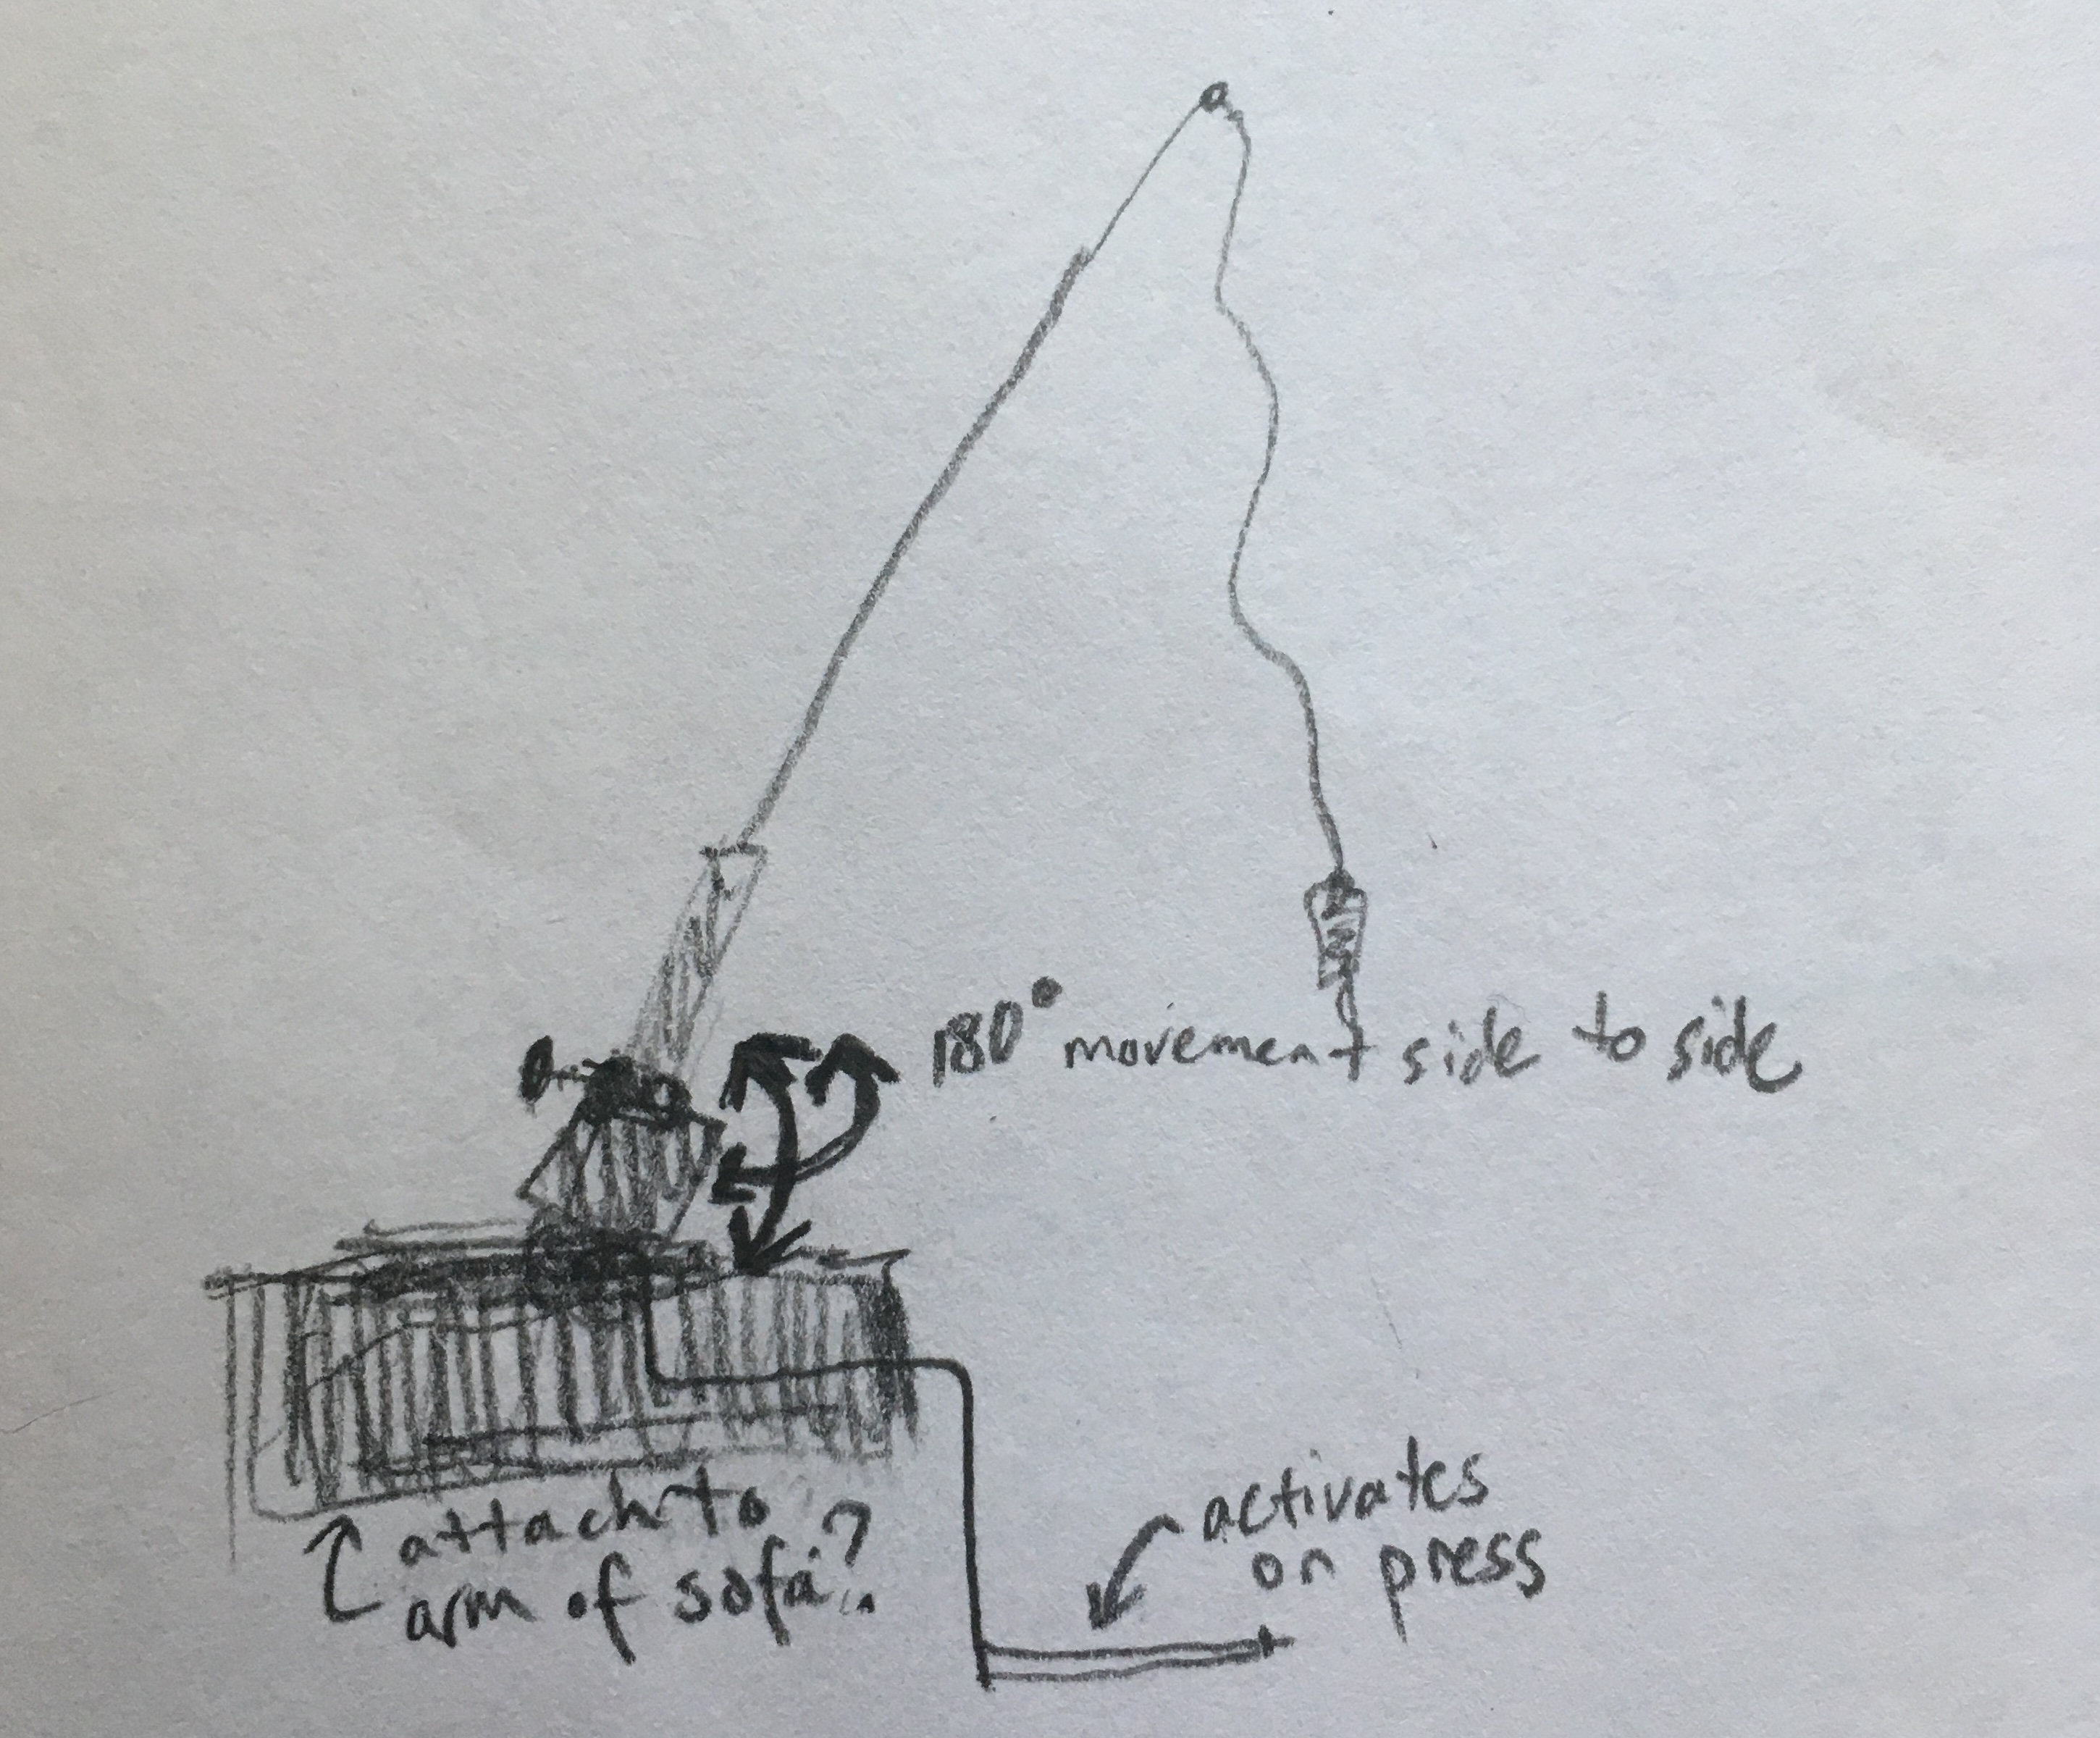 180° movement side to side
attach to
arm of sofa?
activates
on press